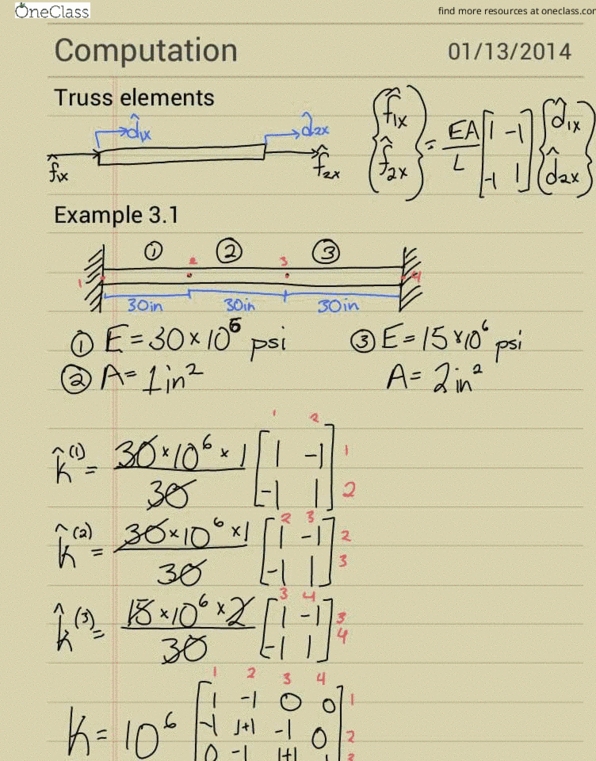 OneClass
find more resources at oneclass.com
Computation 01/13/2014
Truss elements
d̂1x d̂2x
f̂1x f̂2x
{f̂1x f̂2x} = EA/L [1 -1 -1 1] {d̂1x d̂2x}
Example 3.1
① ② ③
1 2 3 4
30in 30in 30in
① E = 30×10⁶ psi ③ E = 15×10⁶ psi
② A = 1in² A = 2in²
1 2
k̂⁽¹⁾ = 30×10⁶×1 / 30 [1 -1 -1 1] 1 2
2 3
k̂⁽²⁾ = 30×10⁶×1 / 30 [1 -1 -1 1] 2 3
3 4
k̂⁽³⁾ = 15×10⁶×2 / 30 [1 -1 -1 1] 3 4
1 2 3 4
K = 10⁶ [1 -1 0 0 1
-1 1+1 -1 0 2
0 -1 1+1